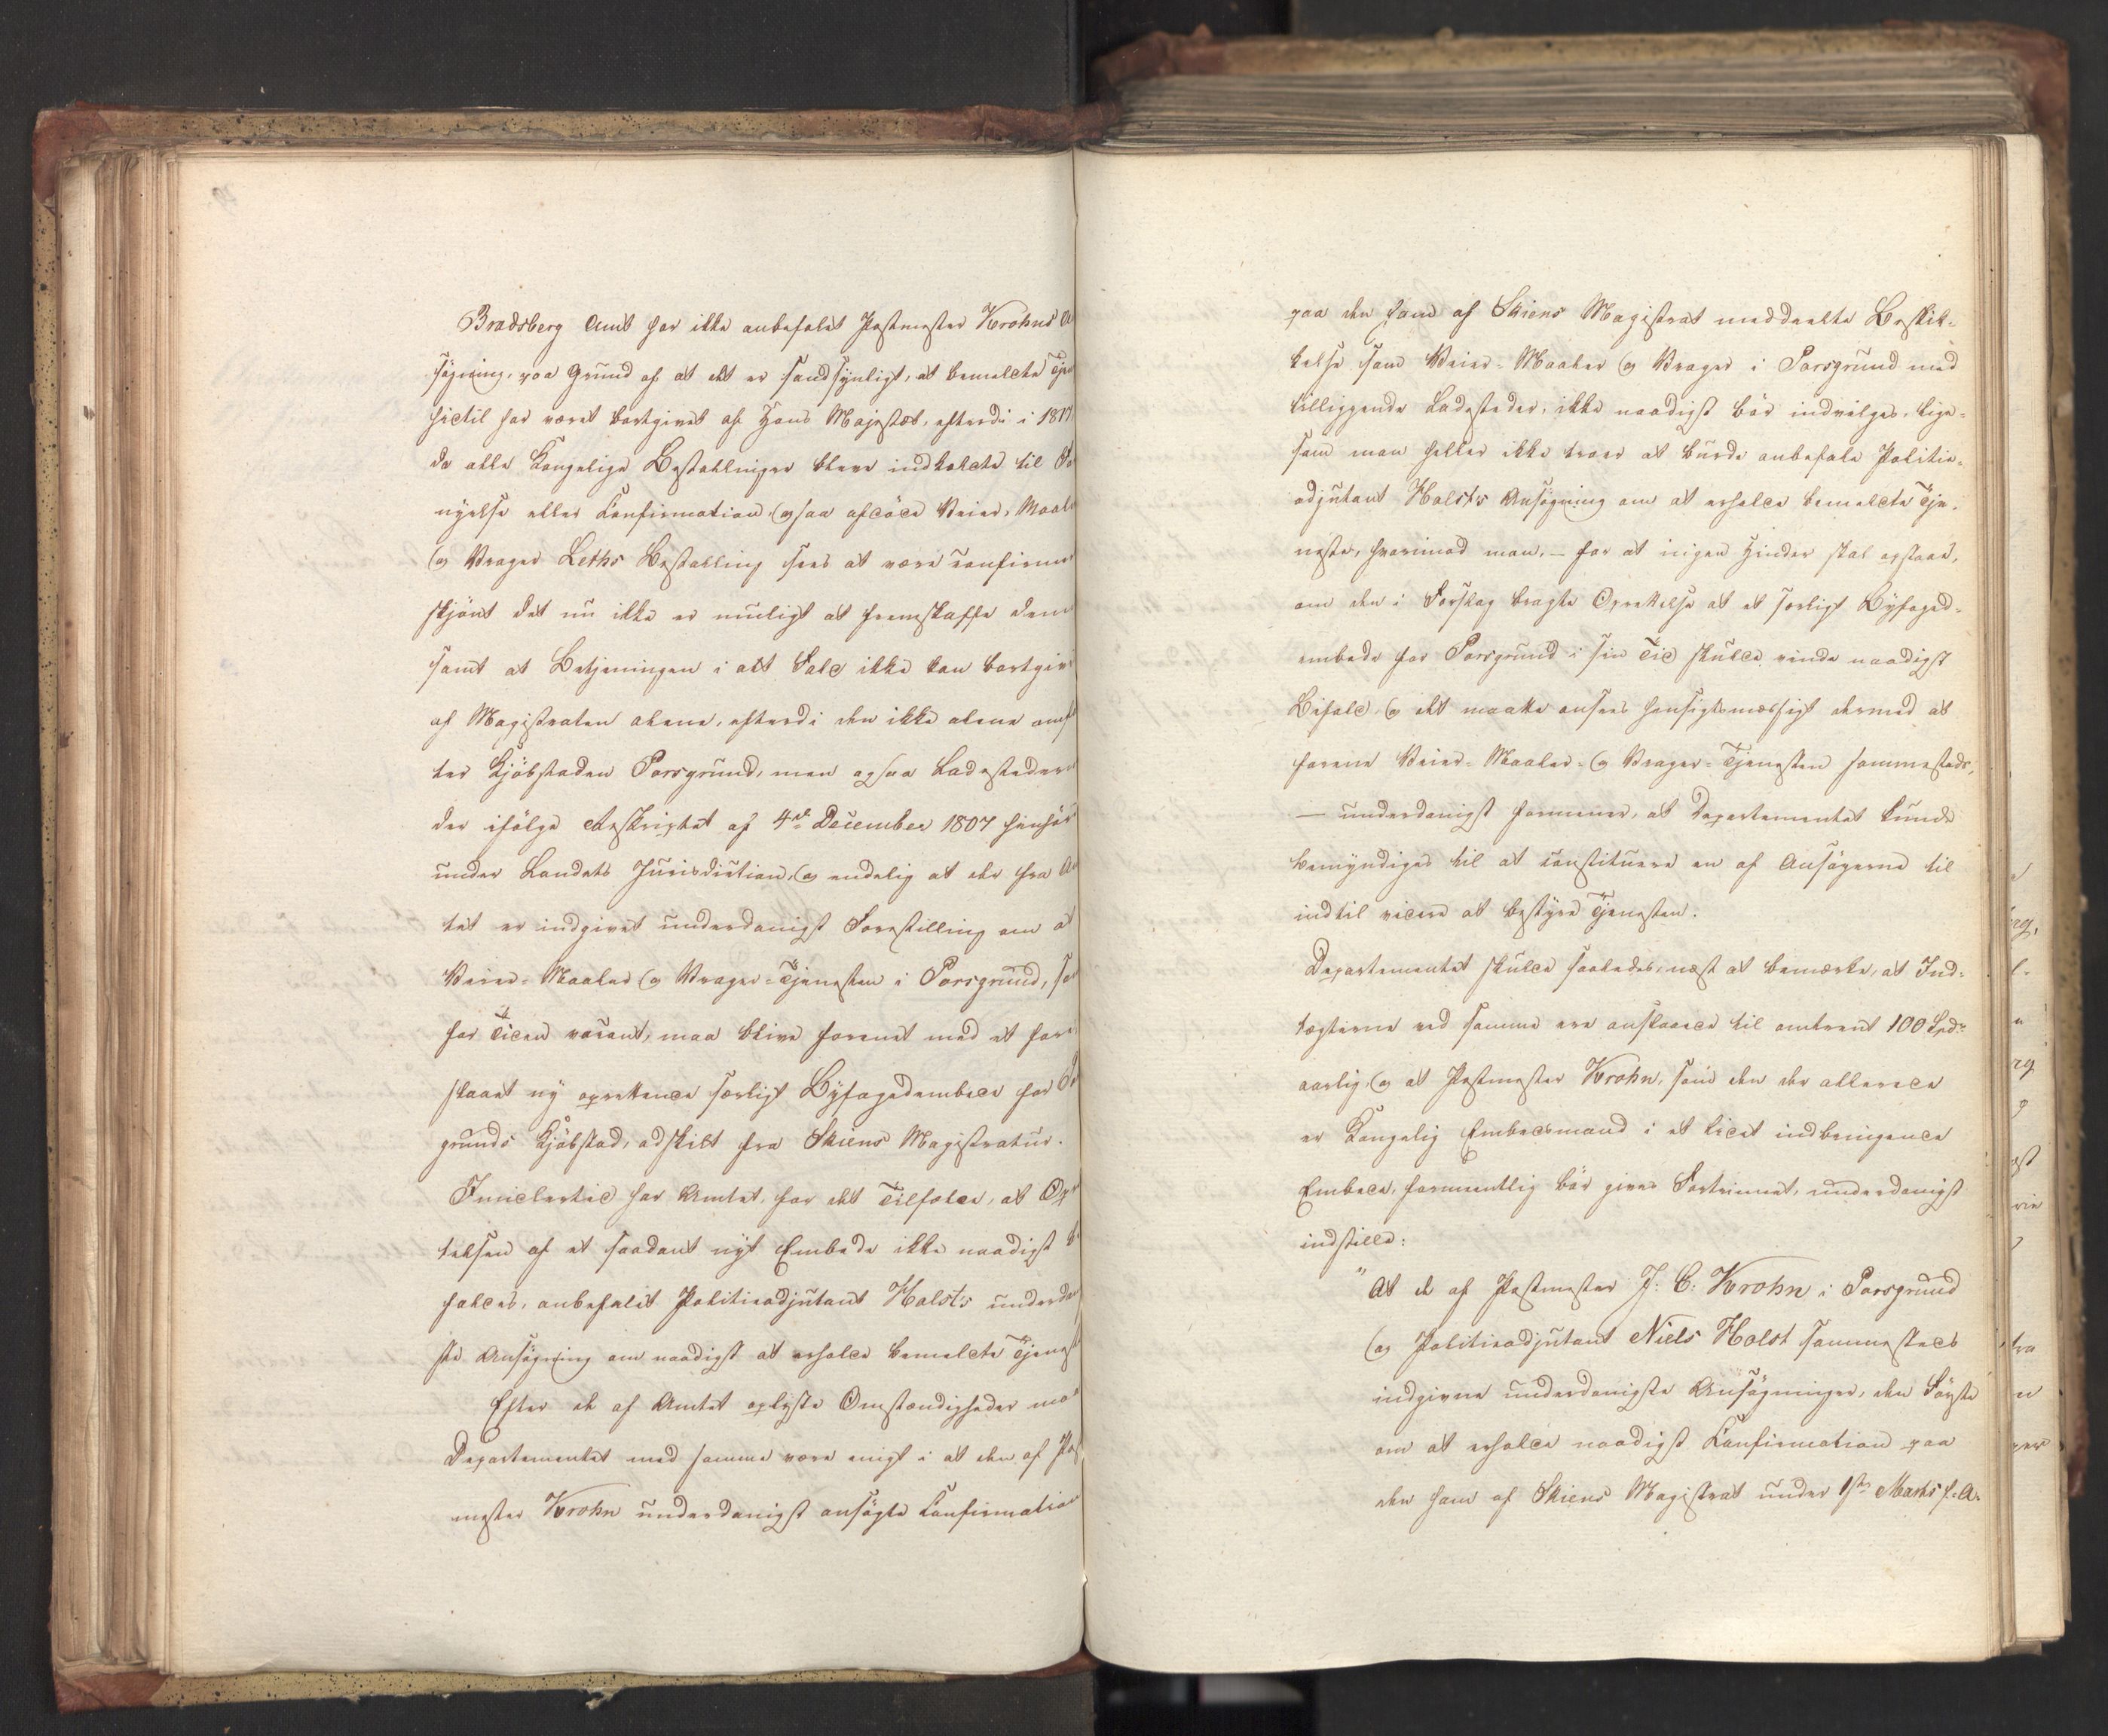 Bradsberg Amt har ikke anbefalet Postmester Krohns A
søgning, paa Grund af at det er sandsynligt, at bemeldte Tje
hidtil har været bortgivet af Hans Majestæt, efterdi i 181
da alle Kongelige Bestallinger bleve indkaldte til Fo
nyelse eller Konfirmation, ogsaa afdøde Veier, Maale
og Vrager Leths Bestalling sees at være confirme
skjønt det nu ikke er muligt at fremskaffe dem
samt at Betjeningen i alt Fald ikke kan bortgiv
af Magistraten alene, efterdi den ikke alene omf
ter Kjøbstaden Porsgrund, men ogsaa Ladestedern
der ifølge Reskriptet af 4de December 1807 henhør
under Landets Jurisdiction, og endelig at der fra A
tet er indgivet underdanigst Forestilling om at
Veier- Maaler og Vrager-Tjenesten i Porsgrund, so
for Tiden vacant, maa blive forenet med et fore
slaaet ny oprettende særligt Byfogedembede for Po
grunds Kjøbstad, adskilt fra Skiens Magistratur.
Imidlertid har Amtet, for det Tilfælde, at Op
telsen af et saadant nyt Embede ikke naadigst b
faldes, anbefalet Politieadjutant Holsts underda
ste Ansøgning om naadigst at erholde bemeldte Tjenes
Efter de af Amtet oplyste Omstændigheder maa
Departementet med samme være enigt i at den af Pos
mester Krohn underdanigst ansøgte Konfirmation
paa den ham af Skiens Magistrat meddeelte Beskik-
kelse som Veier- Maaler og Vrager i Porsgrund med
tilliggende Ladesteder, ikke naadigst bør indvilges, lige-
som man heller ikke troer at burde anbefale Politie-
adjutant Holsts Ansøgning om at erholde bemeldte Tje-
neste, hvorimod man, – for at ingen Hinder skal opstaae,
om den i Forslag bragte Oprettelse at et særligt Byfoged-
embede for Porsgrund i sin Tid skulde vinde naadigst
Bifald, og det maatte ansees hensigtsmæssigt dermed at
forene Veier- Maaler- og Vrager-Tjenesten sammesteds,
— underdanigst formener, at Departementet kunde
bemyndiges til at constituere en af Ansøgerne til
indtil videre at bestyre Tjenesten.
Departementet skulde saaledes, næst at bemærke, at Ind-
tægterne ved samme ere anslaaede til omtrent 100 Spd:
aarlig, og at Postmester Krohn, som den der allerede
er Kongelig Embedsmand i et lidet indbringende
Embede, formentlig bør gives Fortrinnet, underdanigst
indstille:
"At de af Postmester J: C: Krohn i Porsgrund
og Politieadjutant Niels Holst sammesteds
indgivne underdanigste Ansøgninger, den Første
om at erholde naadigst Konfirmation paa
den ham af Skiens Magistrat under 1ste Marts s: A: